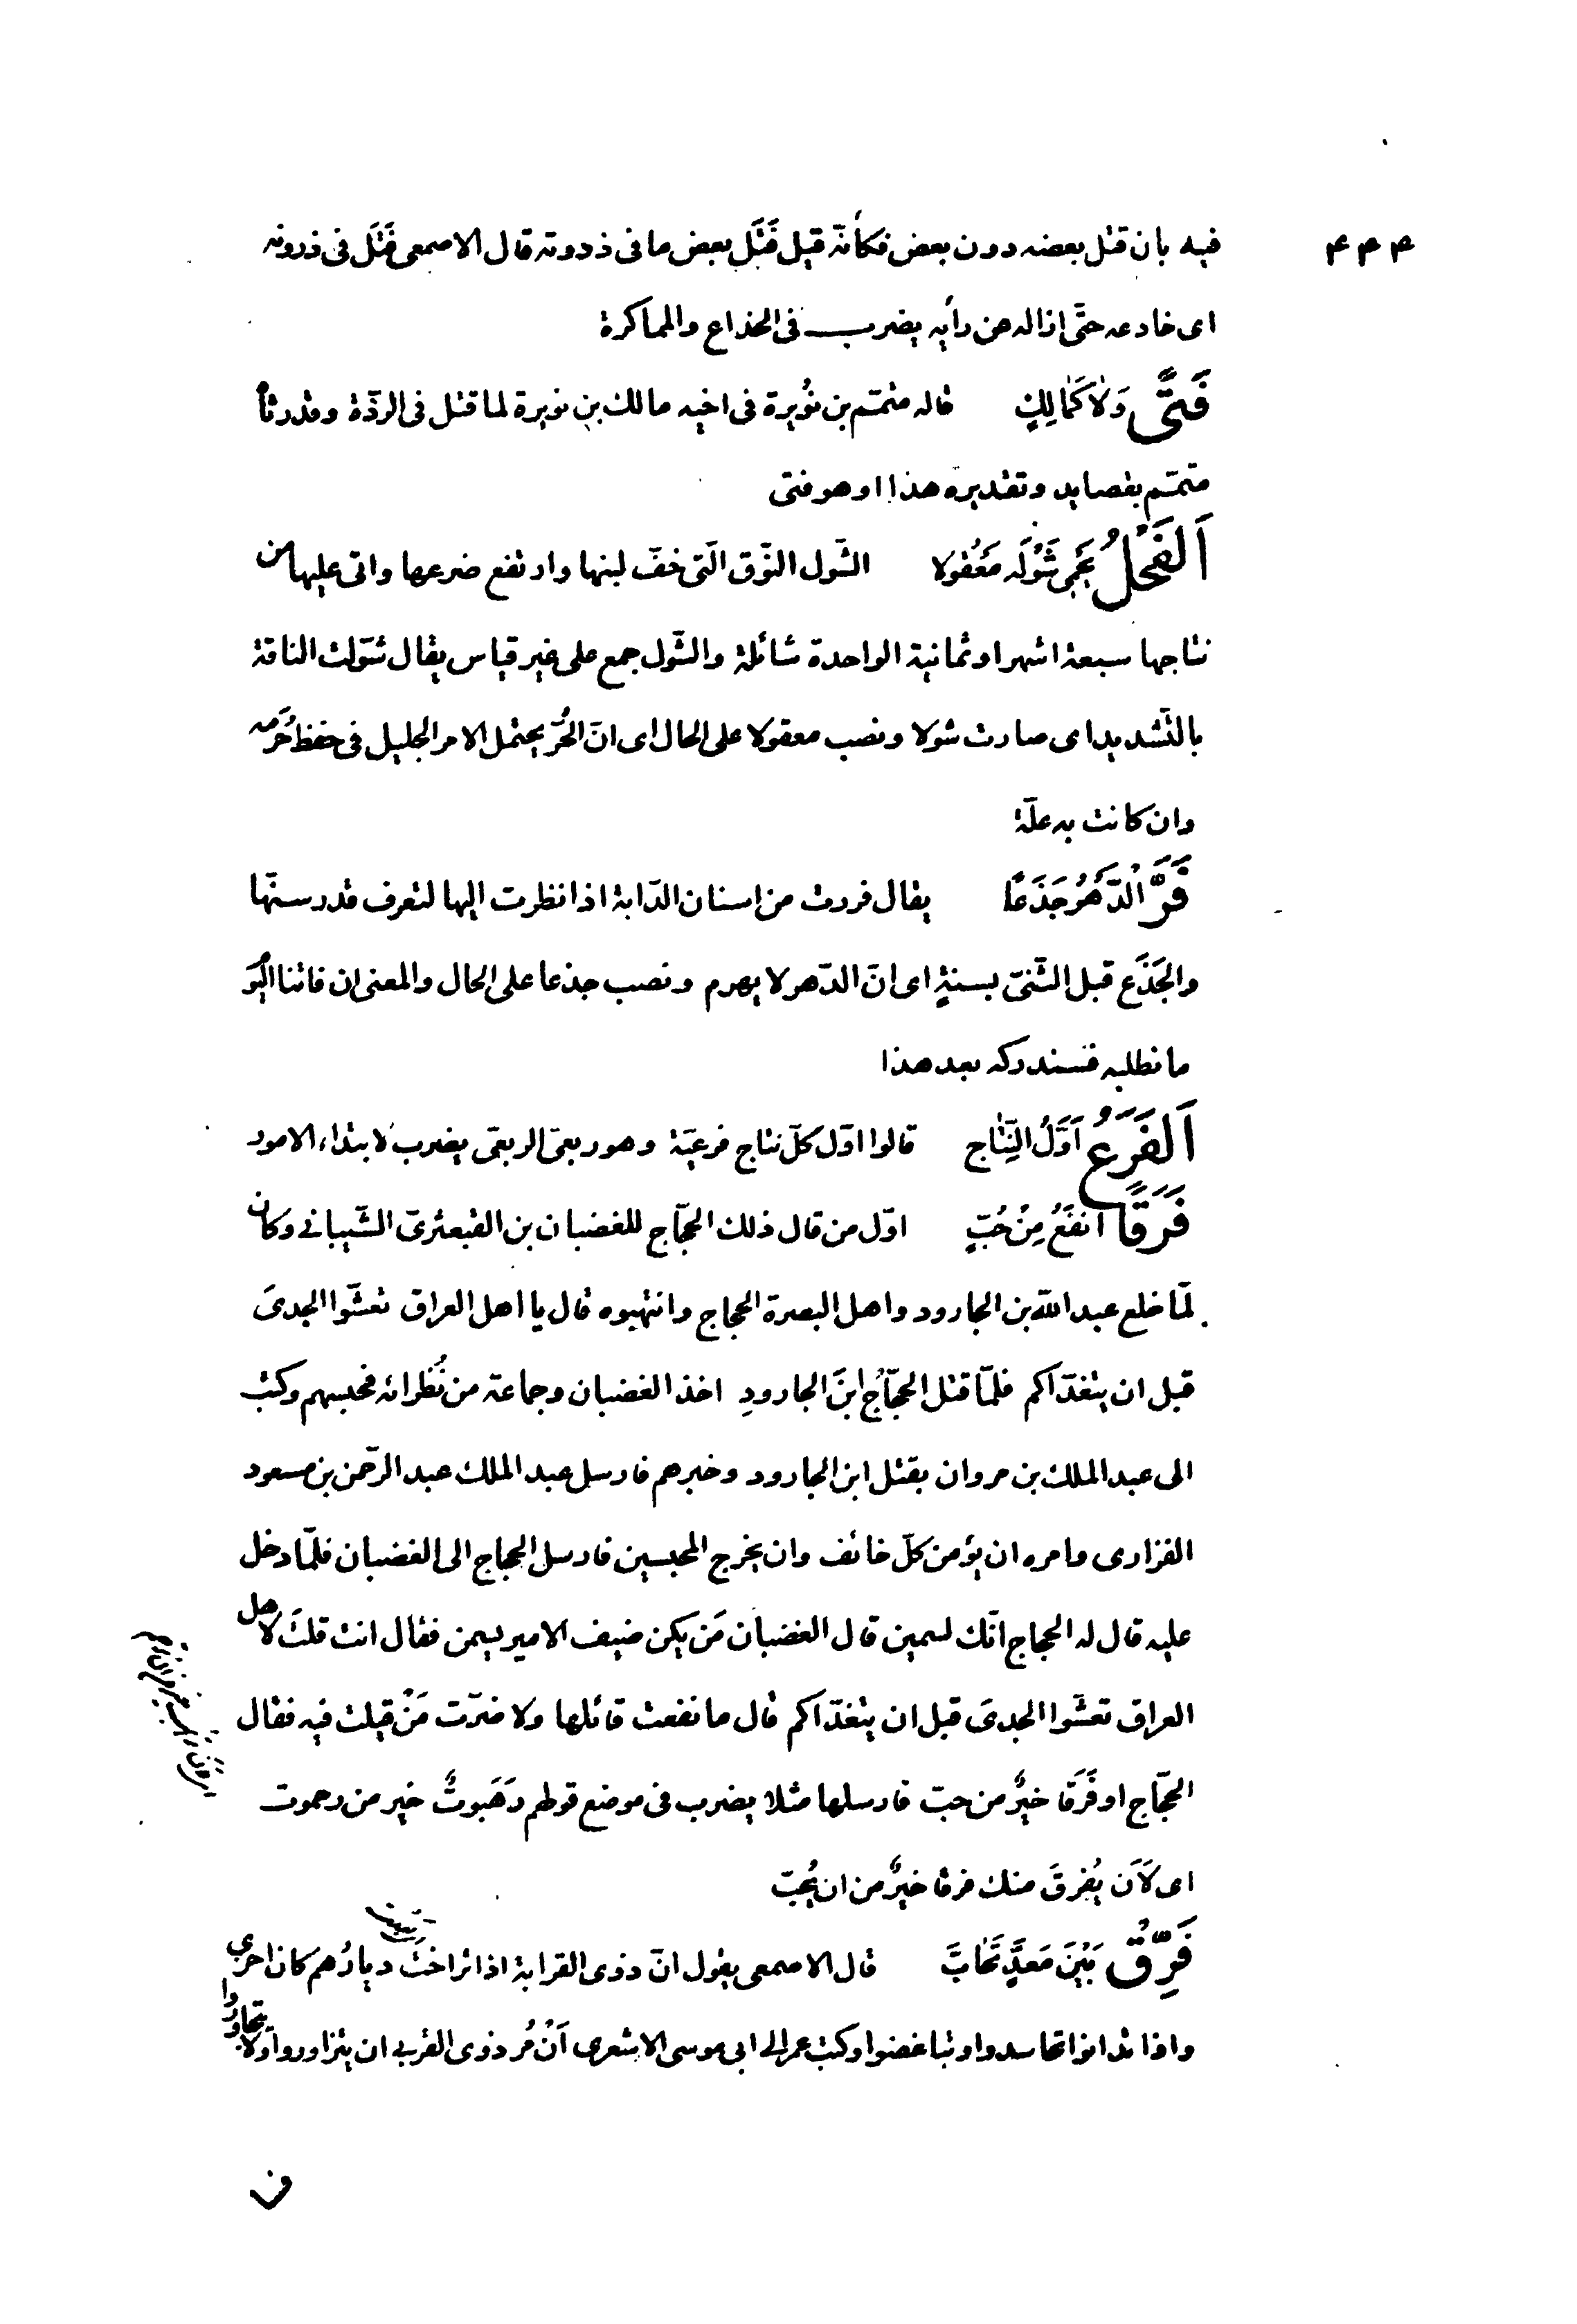 ۴۴۴
فيه بان قتل بعضه دون بعض فكأنّه قيل فَتَل بعض ما فى ذروته قال الاصمعى فَتَل فى ذروته
اى خادعه حتّى ازاله عن رأيه يضرب فى الخداع والمماكرة
فَتًى وَلا كَمالِكٍ قاله متمّم بن نُويرة فى اخيه مالك بن نويرة لما قتل فى الردّة وقد رثاه
متمّم بقصايد وتقديره هذا او هو فتى
اَلفَحْلُ يَحْمِى شَوْلَه مَعْقُولا الشّول النّوق الّتى خفّ لبنها وارتفع ضرعها واتى عليها من
نتاجها سبعة اشهر او ثمانية الواحدة شائلة والشّول جمع على غير قياس يقال شوّلت الناقة
بالتّشديد اى صارت شولا ونصب معقولا على الحال اى انّ الحُرّ يحتمل الامر الجليل فى حفظ حُرَمه
وان كانت به علّة
فُرَّ الدَّهْرُ جَذَعًا يقال فررت من اسنان الدّابة اذا نظرت اليها لتعرف قدر سنّها
والجَذَع قبل الثّنىّ بسنةٍ اى انّ الدّهر لا يهرم ونصب جذعا على الحال والمعنى ان فاتنا اليوم
ما نطلبه فسندركه بعد هذا
اَلفَرَعُ اَوَّلُ النِّتاجِ قالوا اوّل كلّ نتاج فرعيّة وهو ربعىّ الربعى يضرب لابتداء الامور
فَرَقًا اَنفَعُ مِنْ حُبٍّ اوّل من قال ذلك الحجّاج للغضبان بن القبعثرىّ الشّيبانى وكان
لمّا خلع عبد اللّه بن الجارود واهل البصرة الحجاج وانتهبوه قال يا اهل العراق تعشّوا الجدىَ
قبل ان يتغدّاكم فلمّا قتل الحجّاجُ ابنَ الجارودِ اخذ الغضبان وجماعة من نُظرائه فحبسهم وكتب
الى عبد الملك بن مروان بقتل ابن الجارود وخبرهم فارسل عبد الملك عبد الرّحمن بن مسعود
الفزارى وامره ان يؤمن كلّ خائف وان يخرج المحبسين فارسل الحجاج الى الغضبان فلمّا دخل
عليه قال له الحجاج انّك لسمين قال الغضبان مَن يكن ضيف الامير يسمن فقال انت قلتَ لاهل
العراق تعشّوا الجدىَ قبل ان يتغدّاكم قال ما نفعت قائلها ولا ضرّت مَنْ قيلت فيه فقال
الحجّاج او فَرَقا خيرٌ من حبّ فارسلها مثلا يضرب فى موضع قولهم رَهَبوتٌ خير من رحموت
اى لَاَن يُفرقَ منك فرقا خيرٌ من ان يُحبّ
فَرِّقْ بَيْنَ مَعَدٍّ تَحابَّ قال الاصمعى يقول انّ ذوى القرابة اذا تراخت ديارُهم كان احرى
واذا تدانوا تحاسدوا وتباغضوا وكتب عمر الى ابى موسى الاشعرى اَنْ مُر ذوى القربى ان يتزاوروا ولا يتجاوروا